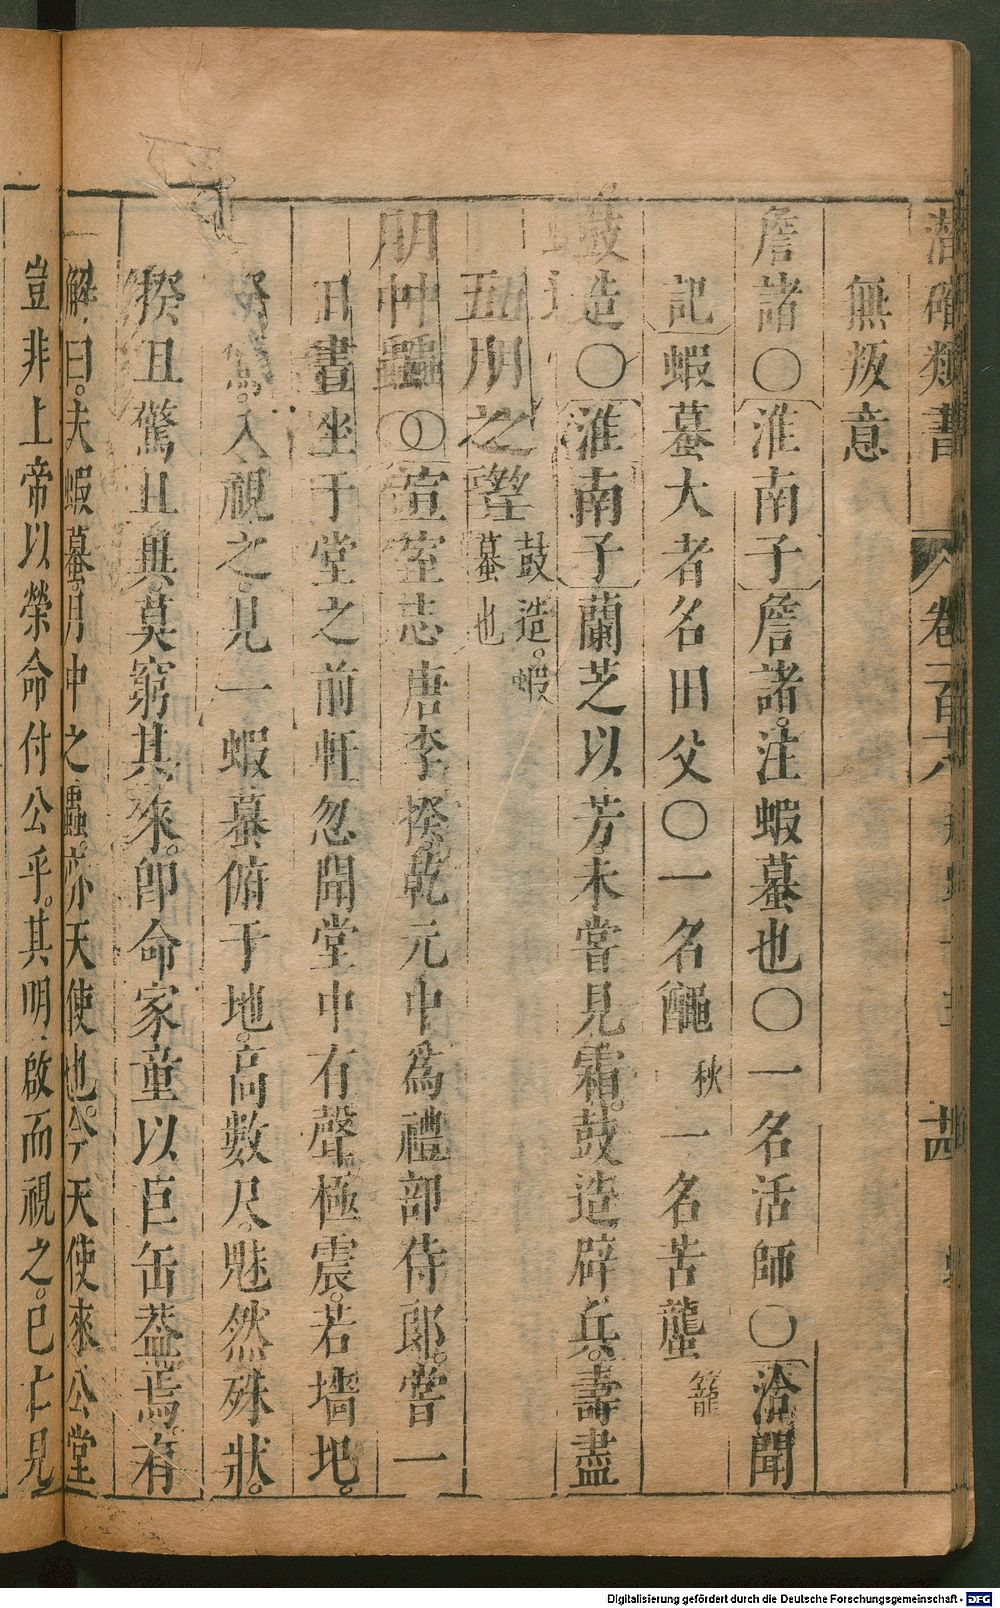 潛確類書 卷一百十八 十四
無叛意
詹諸〇淮南子詹諸注蝦蟇也〇一名活師〇洽聞
記蝦蟇大者名田父〇一名䵷秋一名苦蠪籠
鼓造〇淮南子蘭芝以芳未嘗見霜鼓造辟兵壽盡
五月之望鼓造蝦蟇也
月中蟲〇宣室志唐李揆乾元中爲禮部侍郎嘗一
日晝坐于堂之前軒忽聞堂中有聲極震若墻圯
揆驚入視之見一蝦蟇俯于地高數尺魅然殊狀
揆且驚且異莫窮其來即命家童以巨缶蓋焉有
解曰夫蝦蟇月中之蟲亦天使也今天使來公堂
豈非上帝以榮命付公乎其明啟而視之已亡見
Digitalisierung gefördert durch die Deutsche Forschungsgemeinschaft - DFG